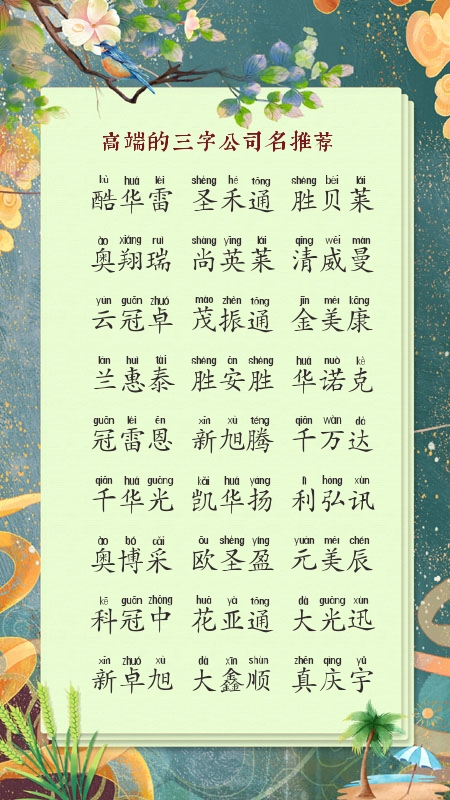 高端的三字公司名推荐
kù huá léi shèng hé tōng shèng bèi lái
酷华雷 圣禾通 胜贝莱
ào xiáng ruì shàng yīng lái qīng wēi màn
奥翔瑞 尚英莱 清威曼
yún guān zhuó mào zhèn tōng jīn měi kāng
云冠卓 茂振通 金美康
lán huì tài shèng ān shèng huá nuò kè
兰惠泰 胜安胜 华诺克
guān léi ēn xīn xù téng qiān wàn dá
冠雷恩 新旭腾 千万达
qiān huá guāng kǎi huá yáng lì hóng xùn
千华光 凯华扬 利弘讯
ào bó cǎi ōu shèng yíng yuán měi chén
奥博采 欧圣盈 元美辰
kē guān zhōng huā yà tōng dà guāng xùn
科冠中 花亚通 大光迅
xīn zhuó xù dà xīn shùn zhēn qìng yǔ
新卓旭 大鑫顺 真庆宇